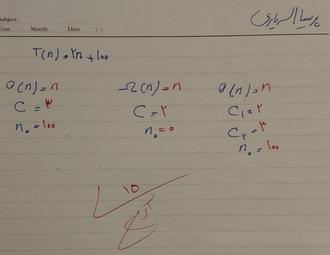 Subject:
Year Month Date ( )
پرسیا السریازی
T(n) = ۲n + ۱۰۰
O(n) = n Ω(n) = n θ(n) = n
C = ۳ C = ۲ C₁ = ۲
n₀ = ۱۰۰ n₀ = ۰ C₂ = ۳
n₀ = ۱۰۰
۱۵